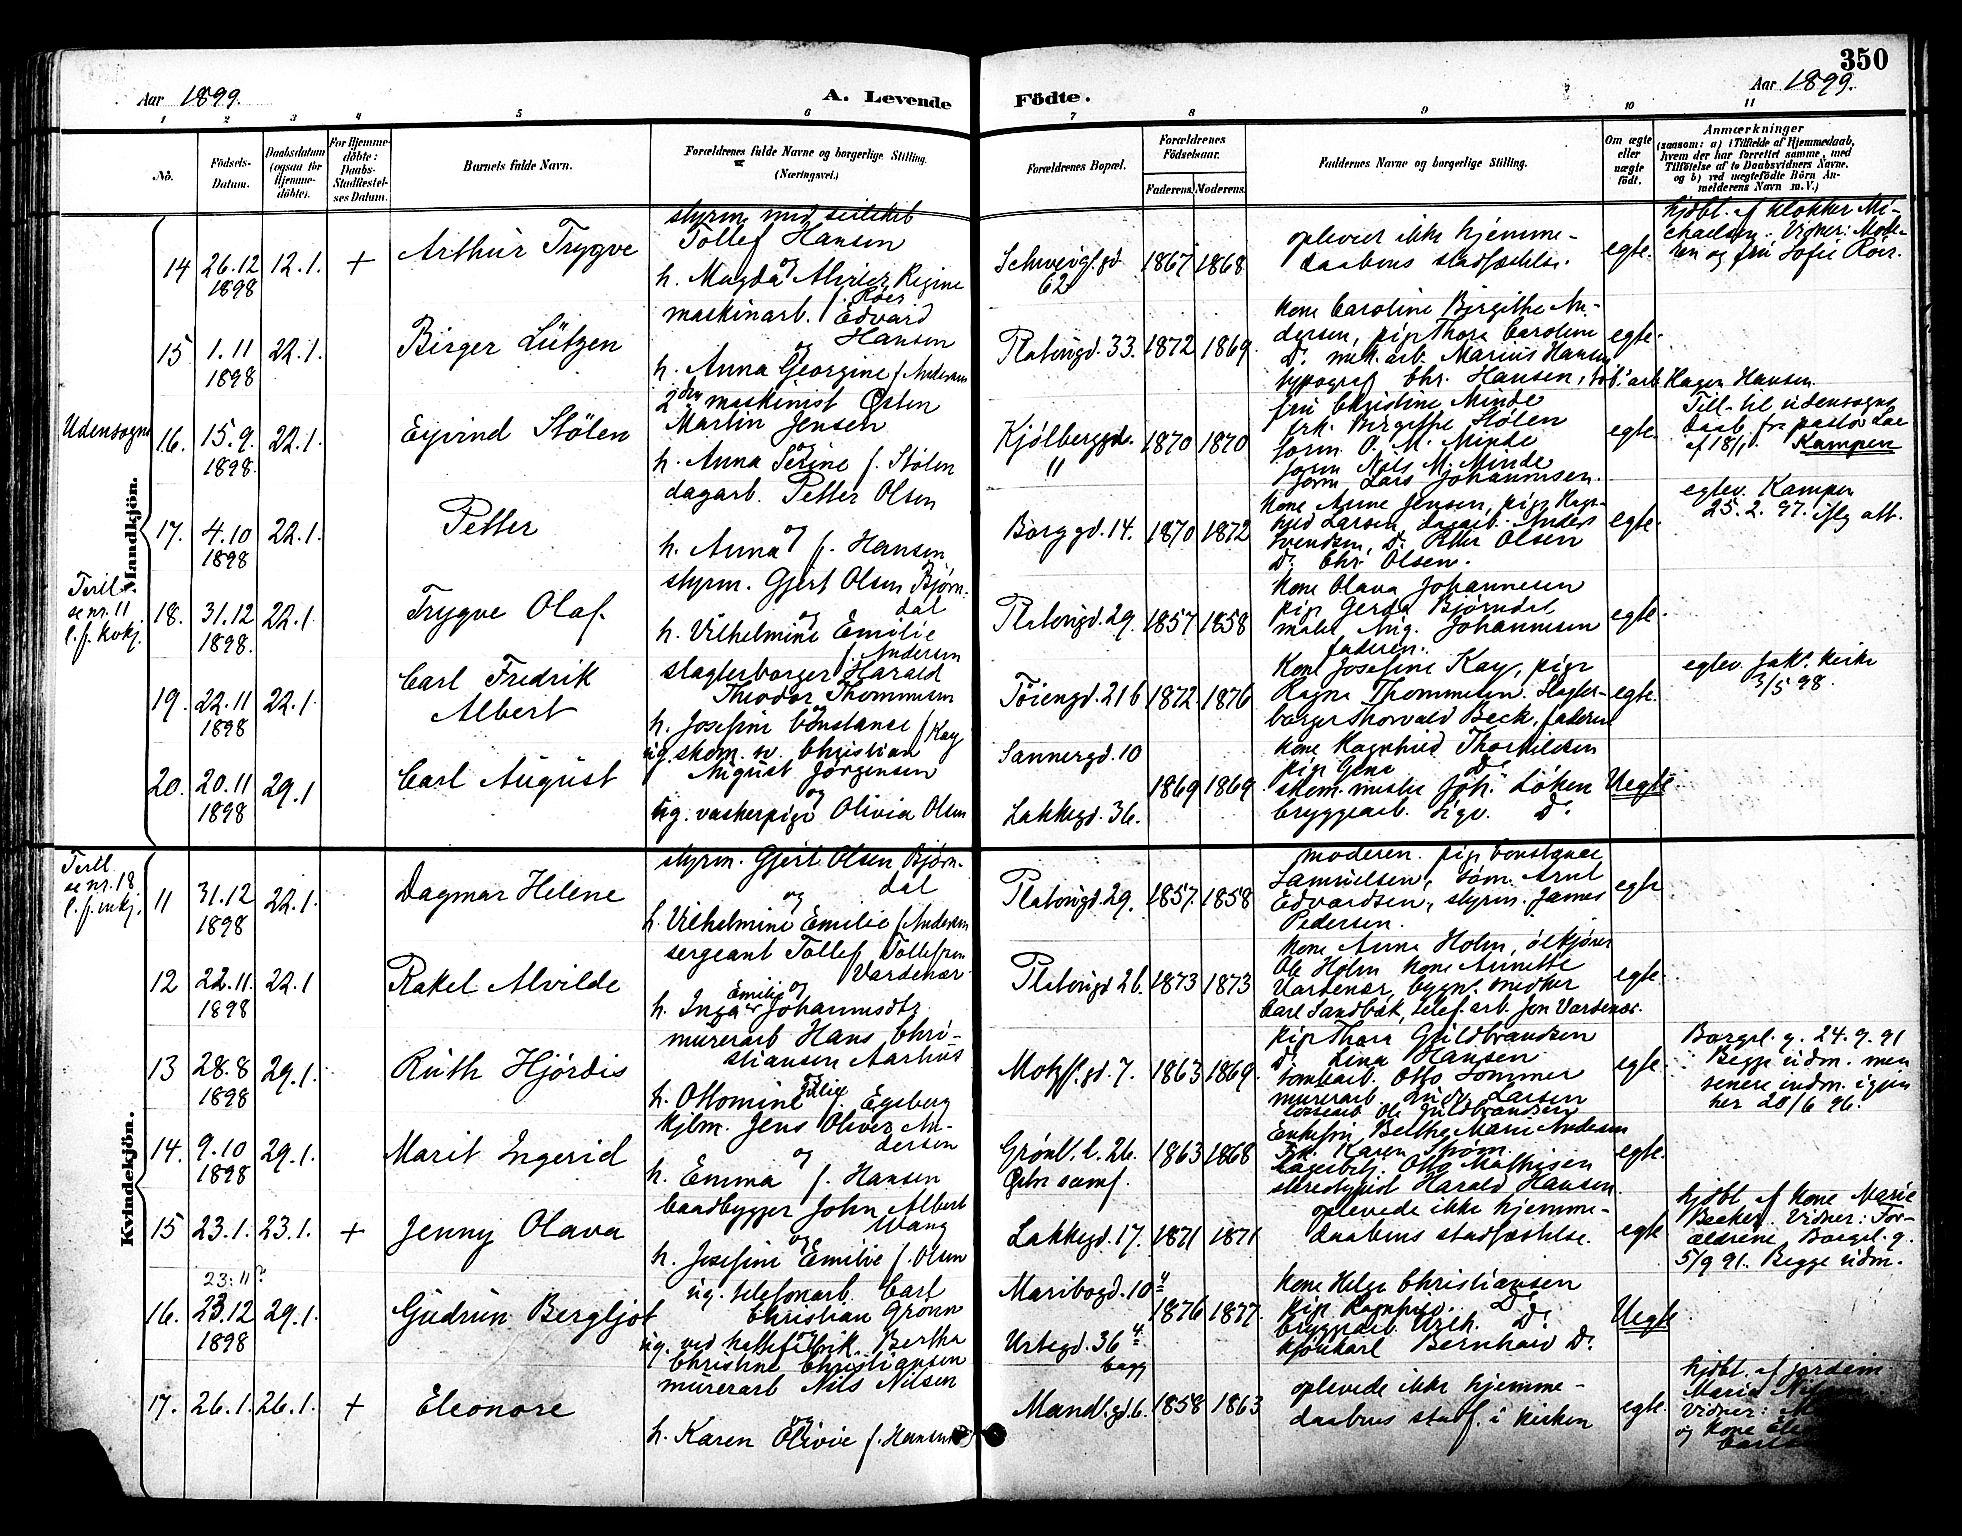 350
Aar 1899.
A. Levende Födte.
Aar 1899.
1 2 3 4 5 6 7 8 9 10 11
No.
Födsels-Datum.
Daabsdatum (ogsaa for Hjemmedöbte).
For Hjemmedöbte: Daabs-Stadfæstelses Datum.
Barnets fulde Navn.
Forældrenes fulde Navne og borgerlige Stilling. (Næringsvei.)
Forældrenes Bopæl.
Forældrenes Födselsaar.
Faderens. Moderens.
Faddernes Navne og borgerlige Stilling.
Om ægte eller uægte födt.
Anmærkninger
(saasom: a) i Tilfælde af Hjemmedaab, hvem der har forrettet samme, med Tilföielse af to Daabsvidners Navne, og b) ved uægtefödte Börn Anmelderens Navn m. V.)
Mandkjön.
14 26.12 1898 12.1. +
Arthur Trygve
styrm. med
Tollef Hansen
og
h. Magda Alvilde Regine
f. Røer
Schweigs.gd 62
1867 1868
oplevet ikke hjemme-
daabens stadfæstelse.
egte.
hjdbt. af klokker Mi-
chaelsen. Vidner: Mode-
ren og fru Sofie Röer.
15 1.11 1898 22.1.
Birger Lützen
maskinarb. Edvard
Hansen
og
h. Anna Georgine f. Andersen
Platougd. 33.
1872 1869.
Kone Caroline Birgithe An-
dersen, pige Thora Caroline
Do. mek. arb. Marius Hansen
typograf Chr. Hansen, tob. arb. Hagen Hansen
egte.
Udensogns
16. 15.9. 1898. 22.1.
Eyvind Stölen
2den maskinist Østen
Martin Jensen
og
h. Anna Serine f. Stölen
Kjölberggd. 11
1870 1870
fru Christine Minde
frk. Birgithe Stölen
form. O. M. Minde
form. Nils M. Minde
form. Lars Johannesen.
egte.
Till. til udensogns
daab fra pastor
af 18/1. Kampen
17. 4.10 1898 22.1.
Petter
dagarb. Petter Olsen
og
h. Anna f. Hansen
Borggd. 14.
1870 1872
Kone Anne Jensen, pige Ragn-
hild Larsen, dagarb. Anders
Svendsen, Do. Petter Olsen
Do. Chr. Olsen.
egte.
egtev. Kampen
25.2.97. iflg att.
Tvill.
se nr. 11
l. f. kvkj.
18. 31.12 1898. 22.1.
Trygve Olaf.
styrm. Gjert Olsen Bjørn-
dal
og
h. Vilhelmine Emilie
f. Andersen
Platougd. 29.
1857 1858
Kone Olava Johannesen
pige Gerda Bjørndal
maler Aug. Johannesen
faderen.
egte.
19. 22.11 1898 22.1.
Carl Fredrik
Albert
slagterborger Harald
Theodor Thommesen
og
h. Josefine Constance f. Kay
Töiengd. 21 b
1872. 1876
Kone Josefine Kay, pige
Ragna Thommesen. Slagter-
borger Thorvald Beck, faderen
egte.
egtev. Jak. kirke
3/5 98.
20. 20.11 1898 29.1
Carl August
ug. skom. sv. Christian
August Jørgensen
og
ug. vaskerpige Olivia Olsen
Sannergd. 10
Lakkegd. 36.
1869 1869
Kone Ragnhild Thorkildsen
pige Gena Do.
skom. mester Joh. Löken
bryggearb. Sigv. Do.
Uegte
Kvindekjön.
Tvill.
se nr. 18
l. f. mkj.
11 31.12 1898 22.1.
Dagmar Helene
styrm. Gjert Olsen Bjørn-
dal
og
h. Vilhelmine Emilie f. Andersen
Platougd. 29.
1857. 1858
moderen. pige Constance
Samuelsen, tøm. Arnt
Edvardsen, styrm. James
Pedersen.
egte
12 22.11. 1898 22.1
Rakel Alvilde
sergeant Tollef Tollefsen
Vardenær
og
h. Inga Emilie Johannesdtr.
Platougd 26.
1873 1873
Kone Anna Holm, ölkjörer
Ole Holm Kone Annette
Vardenær, bygn. snedker
Carl Sandbæk, telef. arb. Jon Vardenær.
egte.
13 28.8 1898 29.1.
Ruth Hjördis
murerarb Hans Chri-
stiansen Aarhus
og
h. Ottomine Edlie f. Egeberg
Motzf.gd. 7.
1863 1869.
pige Thora Guldbrandsen
Do. Lina Hansen
tomtearb. Otto Sommer
murerarb. Ludv. Larsen
Ole Guldbrandsen
egte.
Borgel. g. 24.9.91
Begge udm. men
senere indm. igjen
her 20/6 96.
14. 9.10 1898 29.1.
Marit Ingerid
kjbm. Jens Oliver An-
dersen
og
h. Emma f. Hansen
Grönl. l. 26.
Østre samf.
1863 1868
Enkefru Bertha Marie Andersen
Frk. Karen Strøm.
lagerbetj. Otto Mathisen
stereotypist Harald Hansen.
egte.
15 23.1. 23.1. +
Jenny Olava
baadbygger John Albert
Wang
og
h. Josefine Emilie f. Olsen
Lakkegd. 17.
1871 1871
oplevede ikke hjemme-
daabens stadfæstelse.
egte
hjdbt af Kone Marie
Becker. Vidner: For-
ældrene. Borgel. g.
5/9 91. Begge udm.
23:11?
16. 23.12 1898 29.1.
Gudrun Bergljot
ug. telefonarb. Carl
Christian Grønn
ug. ved hattefabrik. Bertha
Christine Christiansen
Maribogd. 10 4
Urtegd. 36 4. bagg
1876 1877.
Kone Helga Christiansen
pige Ragnhild. Do.
bryggearb. Vilh. Do.
kjørekarl Bernhard Do.
Uegte
17. 26.1. 26.1. +
Eleonore
murerarb Nils Nilsen
og
h. Karen Olivie f. Hansen
Mandl.gd. 6.
1858 1863
oplevede ikke hjemme-
daabens stadf. i kirken
egte.
hjdbt. af jordem.
Maria
Vidner:
og Kone